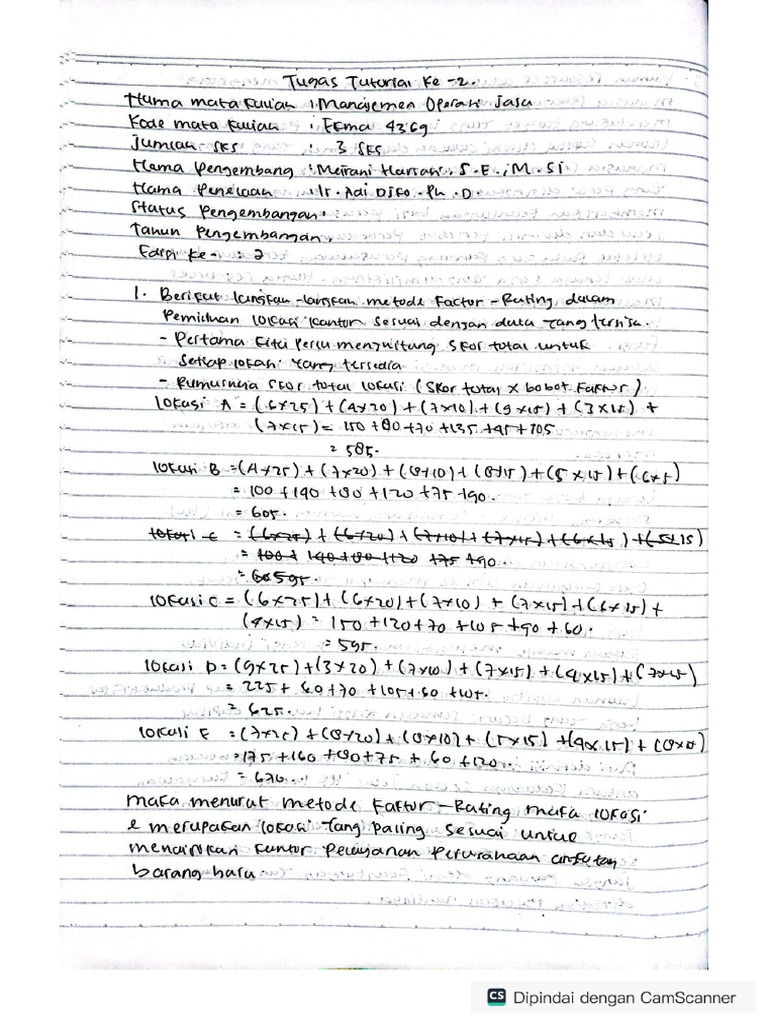 Tugas Tutorial Ke -2.
Nama mata kuliah : Manajemen Operasi Jasa
Kode mata kuliah : Ekma 4369
Jumlah SKS : 3 SKS
Nama Pengembang : Meirani Harsasi, S.E., M.Si
Nama Penelaah : Ir. Adi Djko. Ph. D.
Status Pengembangan :
Tahun Pengembangan.
Edisi Ke- : 2
1. Berikut langkah-langkah metode Factor-Rating dalam
Pemilihan lokasi kantor sesuai dengan data yang tersisa.
- Pertama kita perlu menghitung skor total untuk
setiap lokasi yang tersedia
- Rumusnya skor total lokasi (Skor total x bobot Faktor)
lokasi A = (6x25) + (4x20) + (7x10) + (9x15) + (3x15) +
(7x15) = 150 +80 +70 +135 +45 +105
= 585.
lokasi B = (4x25) + (7x20) + (8x10) + (8x15) + (5x15) + (6x5)
= 100 +140 +80 +120 +75 +90.
= 605.
lokasi C = (6x25) + (6x20) + (7x10) + (7x15) + (6x15) + (5x15)
= 100 + 140 +80 +120 +75 +90.
= 60595.
lokasi C = (6x25) + (6x20) + (7x10) + (7x15) + (6x15) +
(4x15) = 150 +120 +70 +105 +90 +60.
= 595.
lokasi D = (9x25) + (3x20) + (7x10) + (7x15) + (4x15) + (7x15)
= 225 + 60 +70 +105 +60 +105.
= 625.
lokasi E = (7x25) + (8x20) + (8x10) + (5x15) + (4x15) + (8x15)
= 175 +160 +80 +75 + 60 +120.
= 670.
maka menurut metode Faktor-Rating maka lokasi
e merupakan lokasi yang paling sesuai untuk
mendirikan kantor Pelayanan Perusahaan angkutan
barang baru
CS Dipindai dengan CamScanner